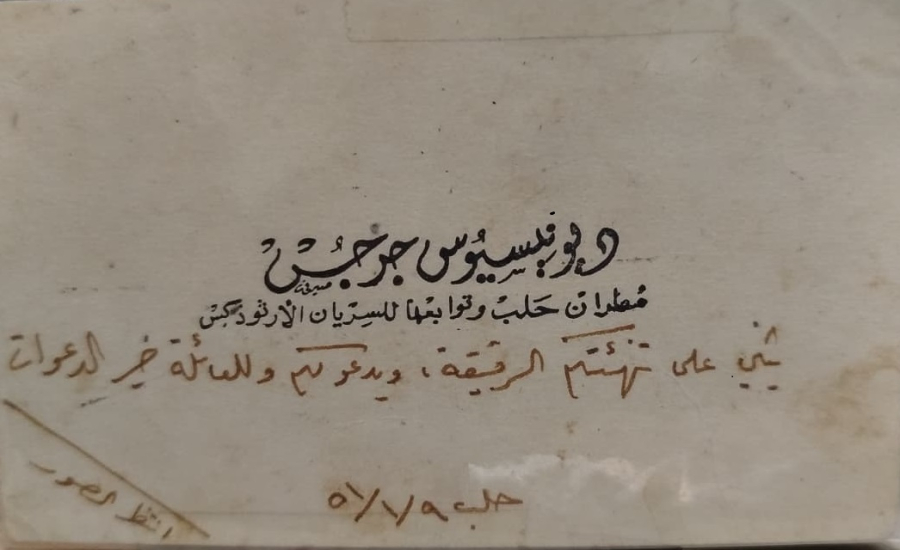 ديونيسيوس جرجس
مطران حلب وتوابعها للسريان الأرثوذكس
يثني على تهنئتكم الرقيقة، ويدعو لكم وللعائلة خير الدعوات
حلب ٥٦/١/٩
انتظر الصور